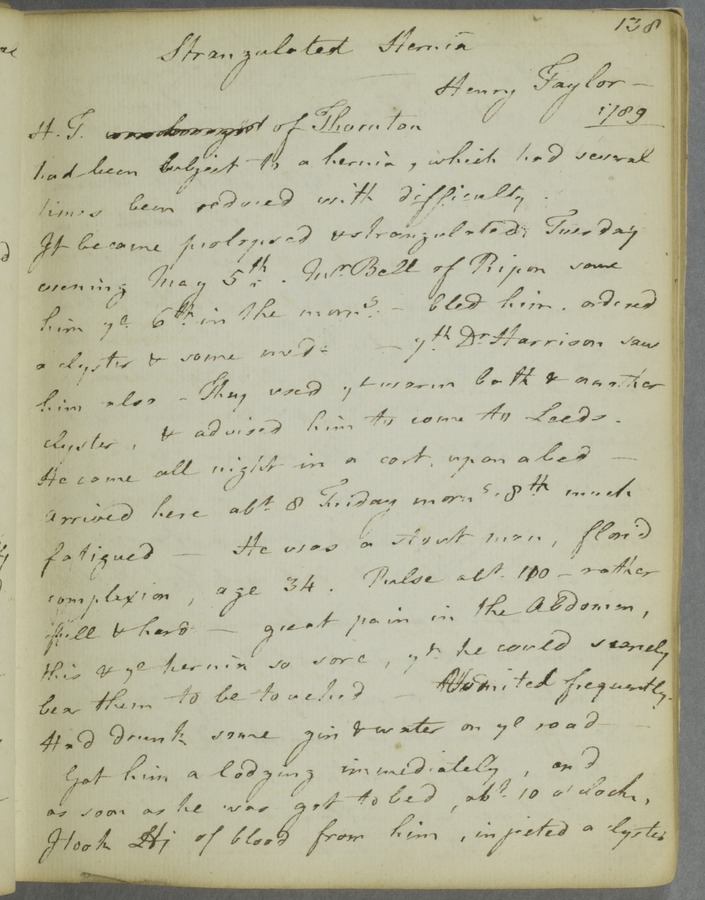 138
Strangulated Hernia
Henry Taylor —
1789
H. T. of Thornton
had been subject to a hernia, which had several
times been reduced with difficulty.
It became prolapsed & strangulated; Tuesday
evening May 5th. Mr Bell of Ripon saw
him ye 6th in the morng. — bled him. ordered
a clyster & some med: — 7th Dr Harrison saw
him also — They used ye warm bath & another
clyster, & advised him to come to Leeds.
He came all night in a cart, upon a bed —
arrived here abt. 8 Friday morng. 8th much
fatigued — He was a stout man, florid
complexion, age 34. Pulse abt. 110 — rather
full & hard — great pain in the Abdomen,
this & ye hernia so sore, yt he could scarcely
bear them to be touched — Vomited frequently.
Had drunk some gin & water on ye road —
Got him a lodging immediately, and
as soon as he was got to bed, abt. 10 o'clock,
I took of blood from him, injected a clyster